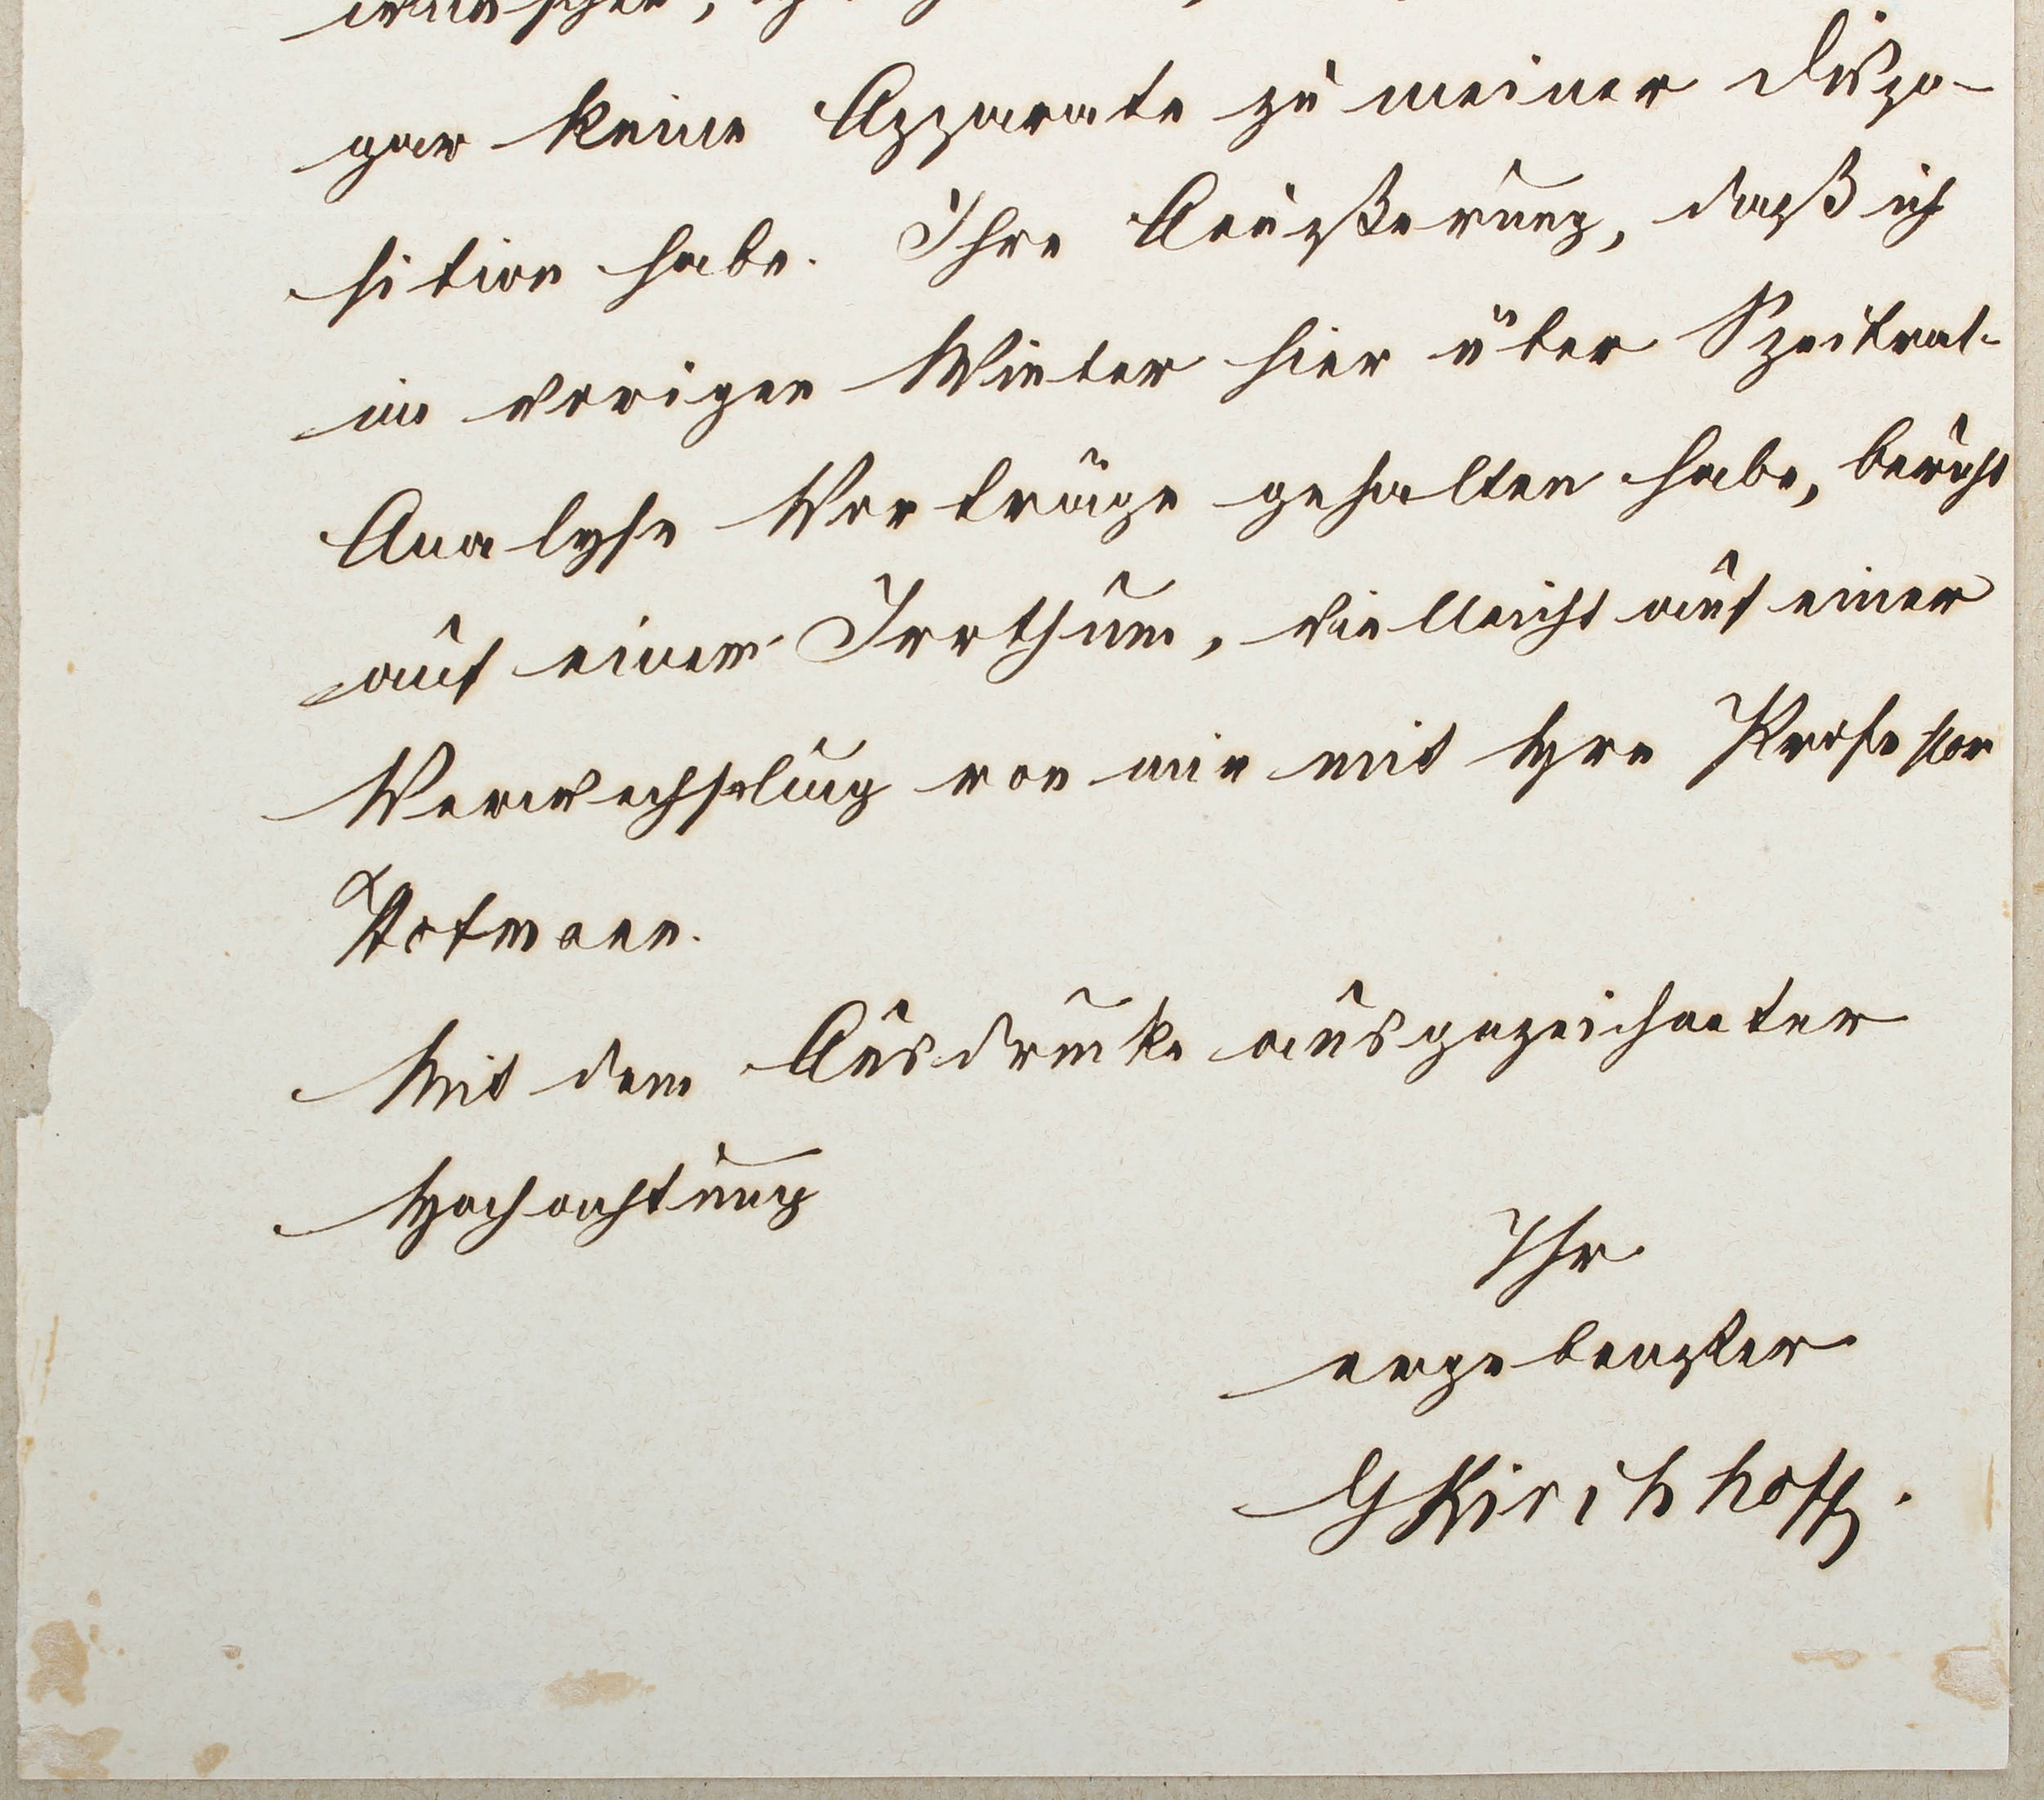 wünschen,
gar keine Apparate zu meiner Dispo-
sition habe. Ihre Aeußerung, daß ich
im vorigen Winter hier über Spectral-
Analyse Vorträge gehalten habe, beruht
auf einem Irrthum, vielleicht auf einer
Verwechselung von mir mit Hrn Professor
Hofmann.
Mit dem Ausdrucke ausgezeichneter
Hochachtung
Ihr
ergebenster
GKirchhoff.